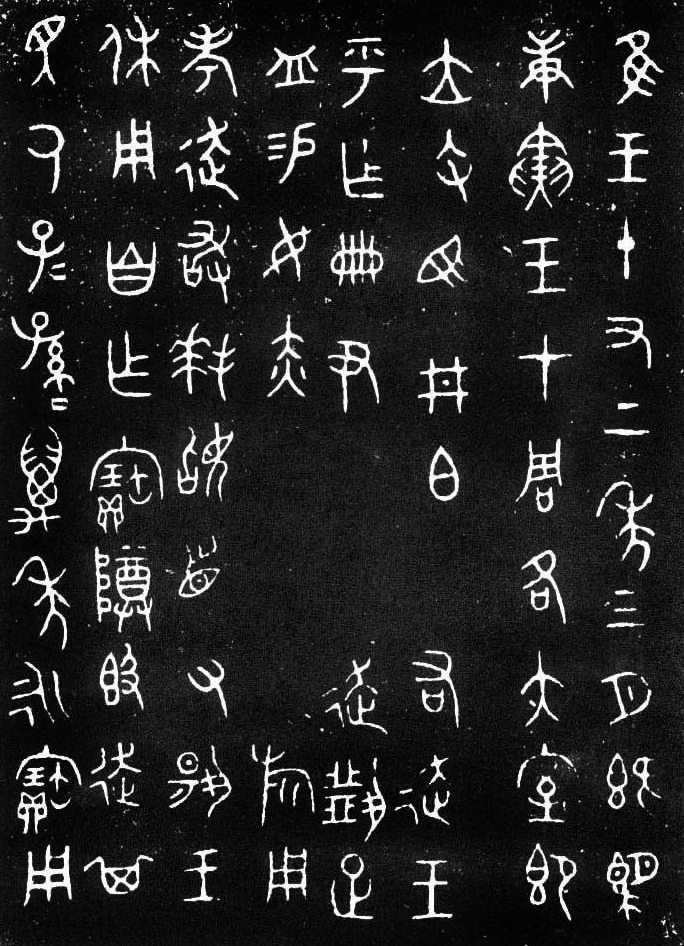 隹王十又二年三月既望
庚寅王才周各大室即
立司馬井白右走王
乎乍冊尹走疋
易女赤旂用
事走敢拜稽首對揚王
休用自乍寶尊𣪘走其
眔厥子=孫=萬年永寶用